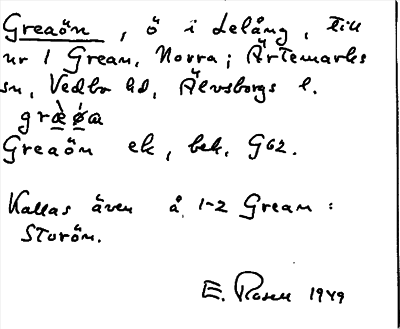 Greaön, ö i Lelång, till
nr 1 Grean, Norra; Ärtemarks
sn, Vedbo hd, Älvsborgs l.
græ̀ǿa
Greaön ek, bek. G62.
Kallas även å 1-2 Grean:
Storön.
E. Rosell 1949